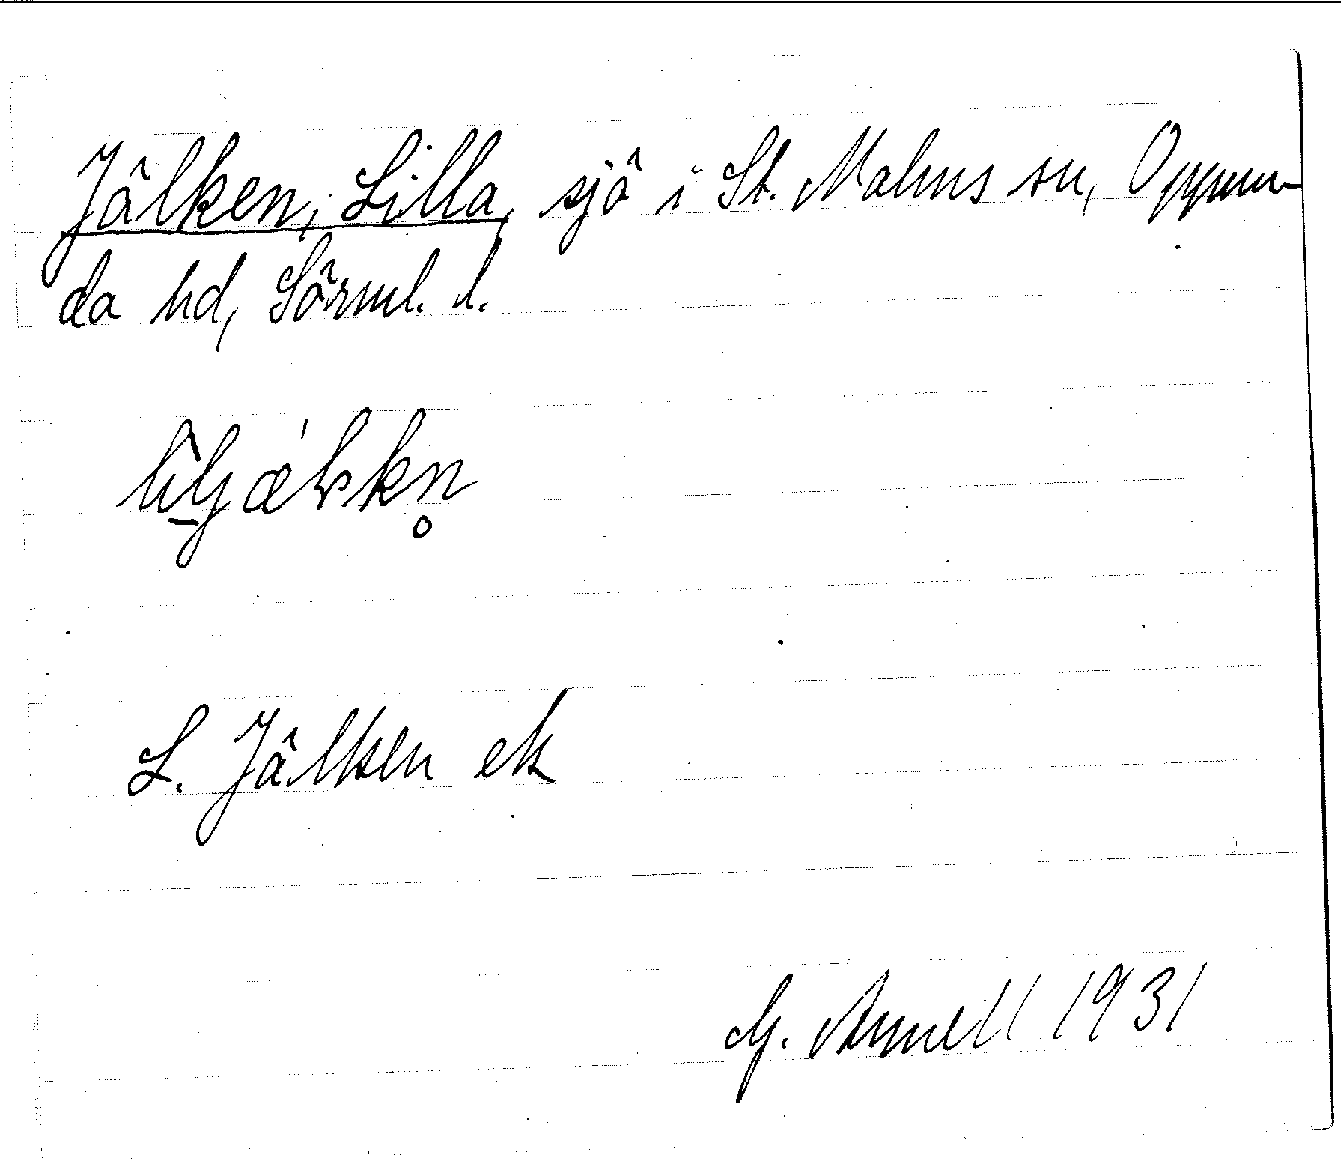 Jälken, Lilla, sjö i St. Malms sn, Oppun-
da hd, Sörml. l.
L. Jälken ek
G. Annell 1931